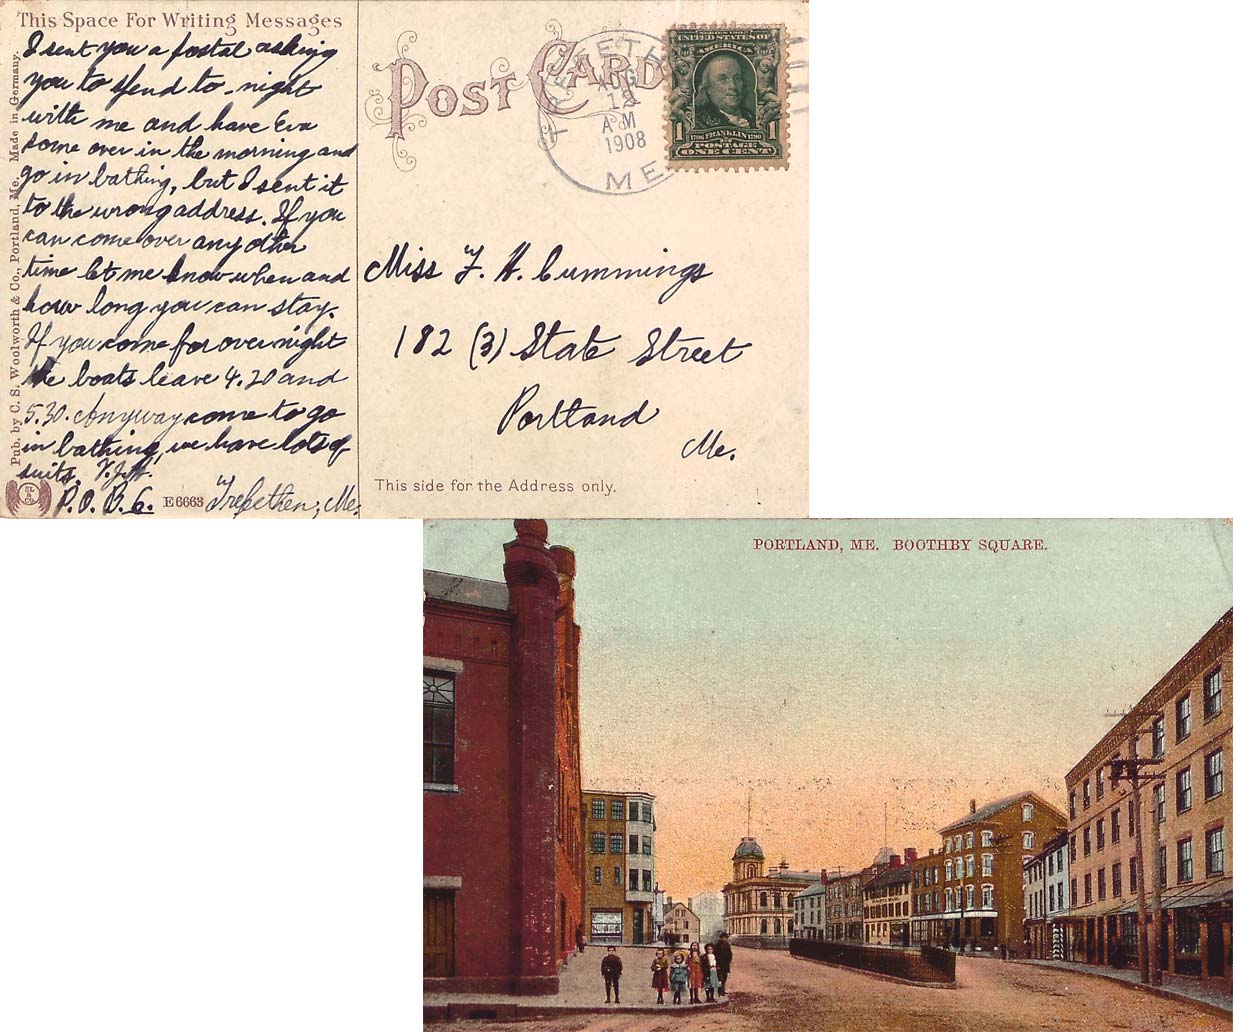 This Space For Writing Messages
Pub. by C. S. Woolworth & Co., Portland, Me. Made in Germany.
I sent you a postal asking
you to spend to-night
with me and have Eva
come over in the morning and
go in bathing, but I sent it
to the wrong address. If you
can come over any other
time let me know when and
how long you can stay.
If you come for over night
the boats leave 4.20 and
5.30. Anyway come to go
in bathing, we have lots of
suits. V.J.H.
P.O. B. 6. E6663 Trefethen, Me.
POST CARD
TREFETHEN
AUG
12
AM
1908
ME.
SERIES 1902
UNITED STATES OF
AMERICA
1706 FRANKLIN 1790
1 POSTAGE 1
ONE CENT
Miss F. H. Cummings
182 (3) State Street
Portland
Me.
This side for the Address only.
PORTLAND, ME. BOOTHBY SQUARE.